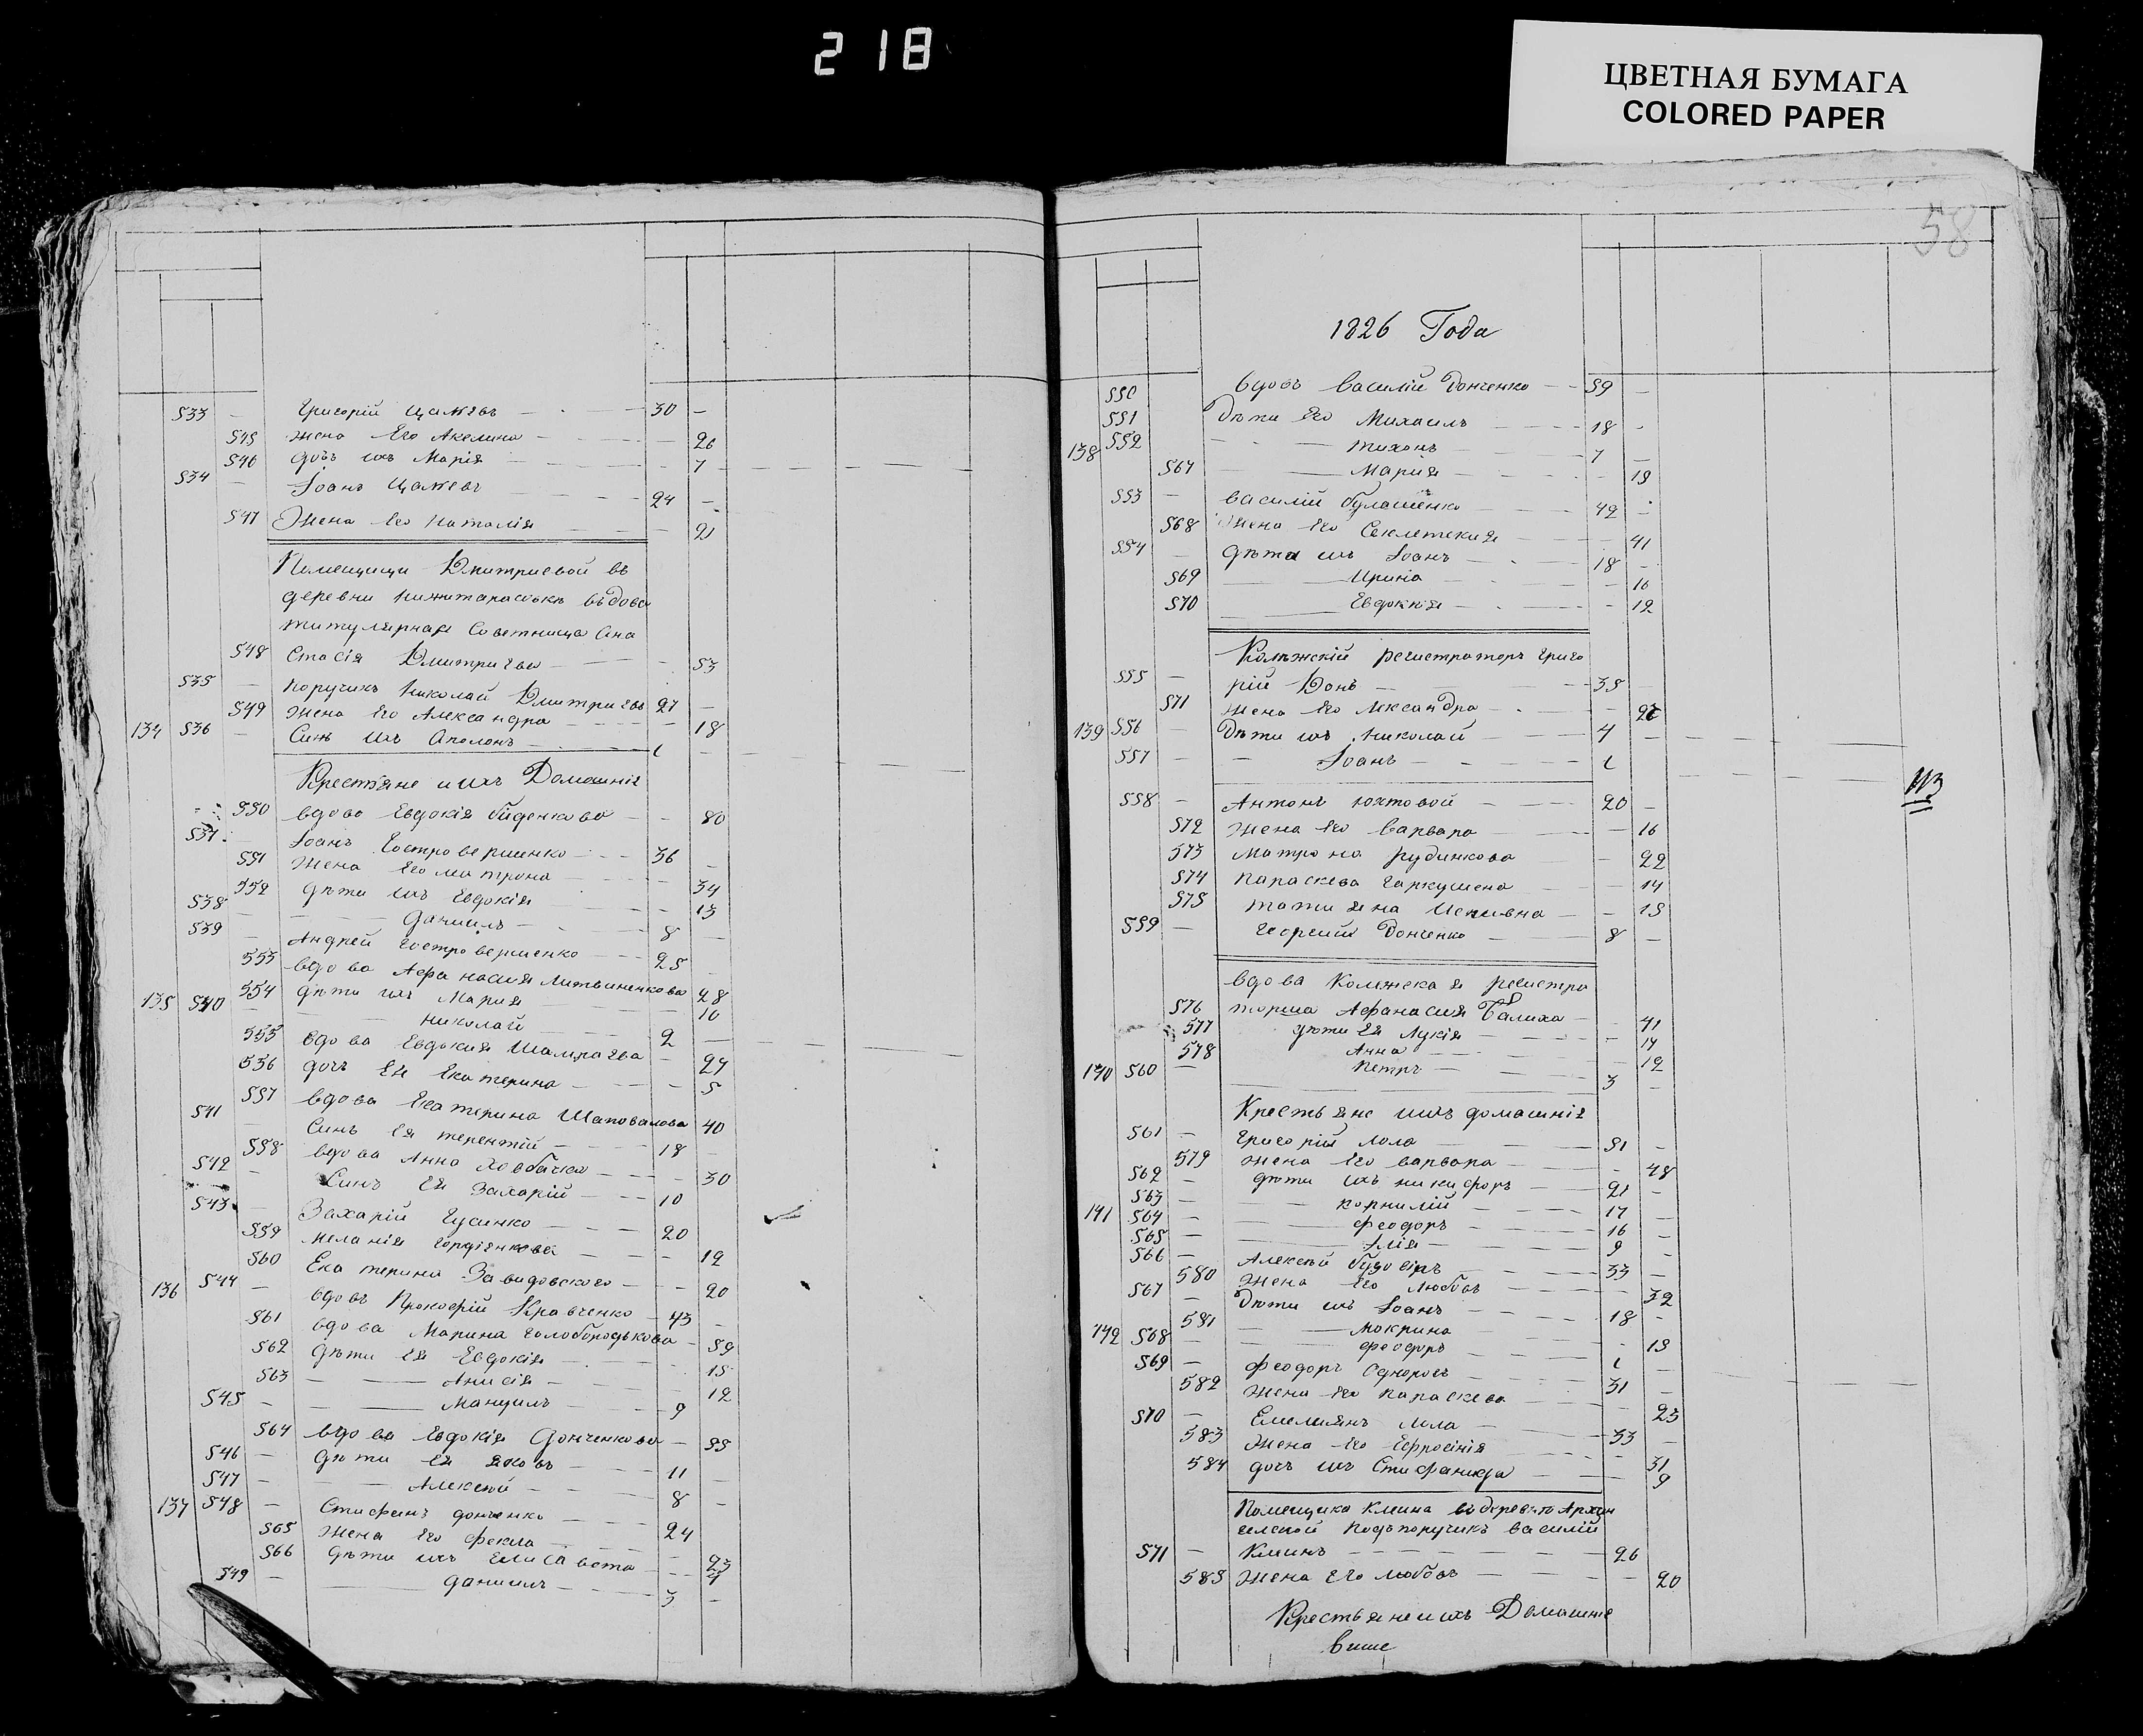 218
ЦВЕТНАЯ БУМАГА
COLORED PAPER
533 — Григорій Цажевъ — 30 —
545 жена Его Акелина — 26
546 дочь ихъ Марія — 7
534 — Іоанъ Цажевъ — 24 —
547 Жена Его Наталія — 21
Помещици Дмитриевой въ
деревни вьдова
титулярная Советница Ана
548 стасія Дмитриева — 53
535 — поручикъ Николай Дмитриевъ 27 —
549 Жена Его Александра — 18
134 536 — Синъ ихъ Аполонъ — 1 —
Крестяне и ихъ Домашніе
550 вдова Евдокія — 80
537 Іоанъ Гостровершенко — 36 —
551 Жена Его матрона — 34
552 дѣти ихъ Евдокія — 13
538 — Даниилъ — 8 —
539 — Андрей Гостровершенко — 25 —
553 вдова Афанасия Литвиненкова 48
554 дѣти ихъ Мария — 10
135 540 — николай — 2 —
555 вдова Евдокия Шамраева — 27
556 дочъ Ея Екатерина — 5
557 вдова Екатерина Шаповалова 40
541 Синъ Ея терентій — 18 —
558 вдова Анна — 30
542 — Синъ Ея Захарій — 10
543 — Захарій Гусинко — 20
559 меланія Гордіенкова — 19
560 Екатерина Завидовского — 20
136 544 — вдовъ Прокофій Кравченко — 43 —
561 вдова Марина голобородькова — 59
562 дѣти Ея Евдокія — 15
563 — Анисія — 12
545 — Мануилъ — 9
564 вдова Евдокія Донченкова — 55
546 — дѣти Ея яковъ — 11 —
547 — Алексей — 8 —
137 548 — Стефанъ донченко — 24
565 жена Его Фекла — 23
566 дѣти ихъ Елисавета — 4
549 — даниилъ — 3 —
58
1826 Года
550 вдовъ Василій Донченко — 59 —
551 Дѣти Его Михаилъ — 18 -
138 552 — тихонъ — 7 —
567 — Мария — 13
553 — василій — 42 —
568 Жена Его Секлетекия — 41
554 — дѣти ихъ Іоанъ — 18 —
569 — Ирина — 16
570 — Евдокия — 12
Колѣжскій регистраторъ григо
555 — рій Донъ — 35 —
571 жена Его Александра —
139 556 — Дѣти ихъ Николай — 4 —
557 — Іоанъ — 1
558 — Антонъ юхтовой — 20 —
572 жена Его варвара — 16
573 Матрона рудинкова — 22
574 параскева Гаркушена — 14
575 татияна — 15
559 — Георгий Донченко — 8 —
вдова Колежская регистра
576 торша Афанасия Балиха — 41
577 дѣти Ея Лукія — 14
578 Анна — 12
140 560 — петръ — 3 —
Крестьяне ихъ домашнія
561 — григорій Лола — 51 -
579 жена Его варвара — 48
562 — дѣти ихъ никифоръ — 21 —
563 — корнилій — 17
141 564 — Феодоръ — 16
565 — Ілія — 9
566 — Алексей — 33 —
580 Жена Его Любовъ — 32
567 — Дѣти ихъ Іоанъ — 18 -
581 — Мокрина — 13
142 568 — феодоръ — 1 —
569 — Феодоръ Однорогъ — 31 —
582 жена Его параскева — 23
570 — Емелиянъ Лола — 33 —
583 Жена Его Ефросінія — 31
584 дочъ ихъ Стефанида — 9
Помещика Клина въ деревнѣ Архан
гелской подъпоручикъ василій
571 — Клинъ — 26
585 Жена Его любовъ — 20
Крестьяне и ихъ Домашніе
више